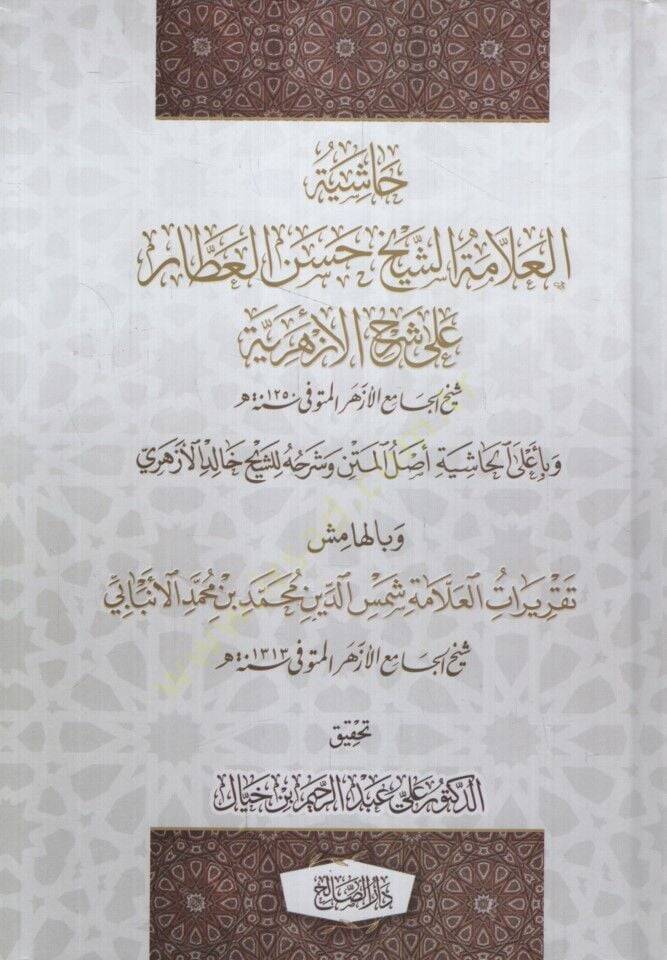 حَاشِيَةُ
العَلَّامَةِ الشَّيْخِ حَسَن العَطَّار
عَلى شَرْحِ الأَزْهَرِيَّة
شيخ الجامع الأزهر المتوفى سنة ١٢٥٠هـ
وبأعلى الحاشية أصل المتن وشرحه للشيخ خالد الأزهري
وبالهامش
تقريرات العلامة شمس الدين محمد بن محمد الأنبابي
شيخ الجامع الأزهر المتوفى سنة ١٣١٣هـ
تحقيق
الدكتور علي عبد الرحيم بن خيال
دار الصالح